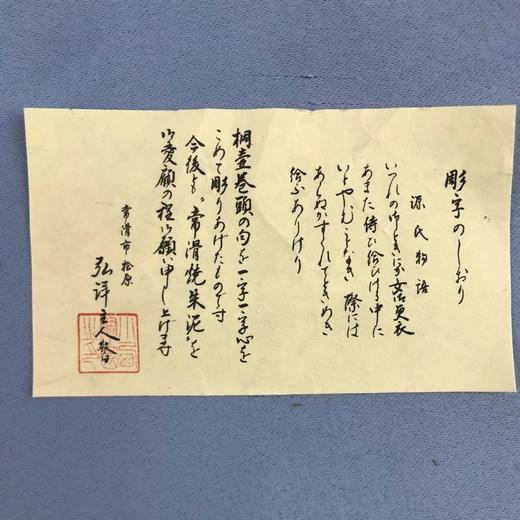 彫字のしおり
源氏物語
いづれの御ときにか女御更衣
あまた侍ひ給ひける中に
いとやむごとなき際には
あらぬがすぐれてときめき
給ふありけり
桐壺巻頭の句を一字一字心を
こめて彫りあげたものです
今後とも“常滑焼朱泥”を
御愛顧の程御願い申し上げます
常滑市松原
弘洋主人敬白